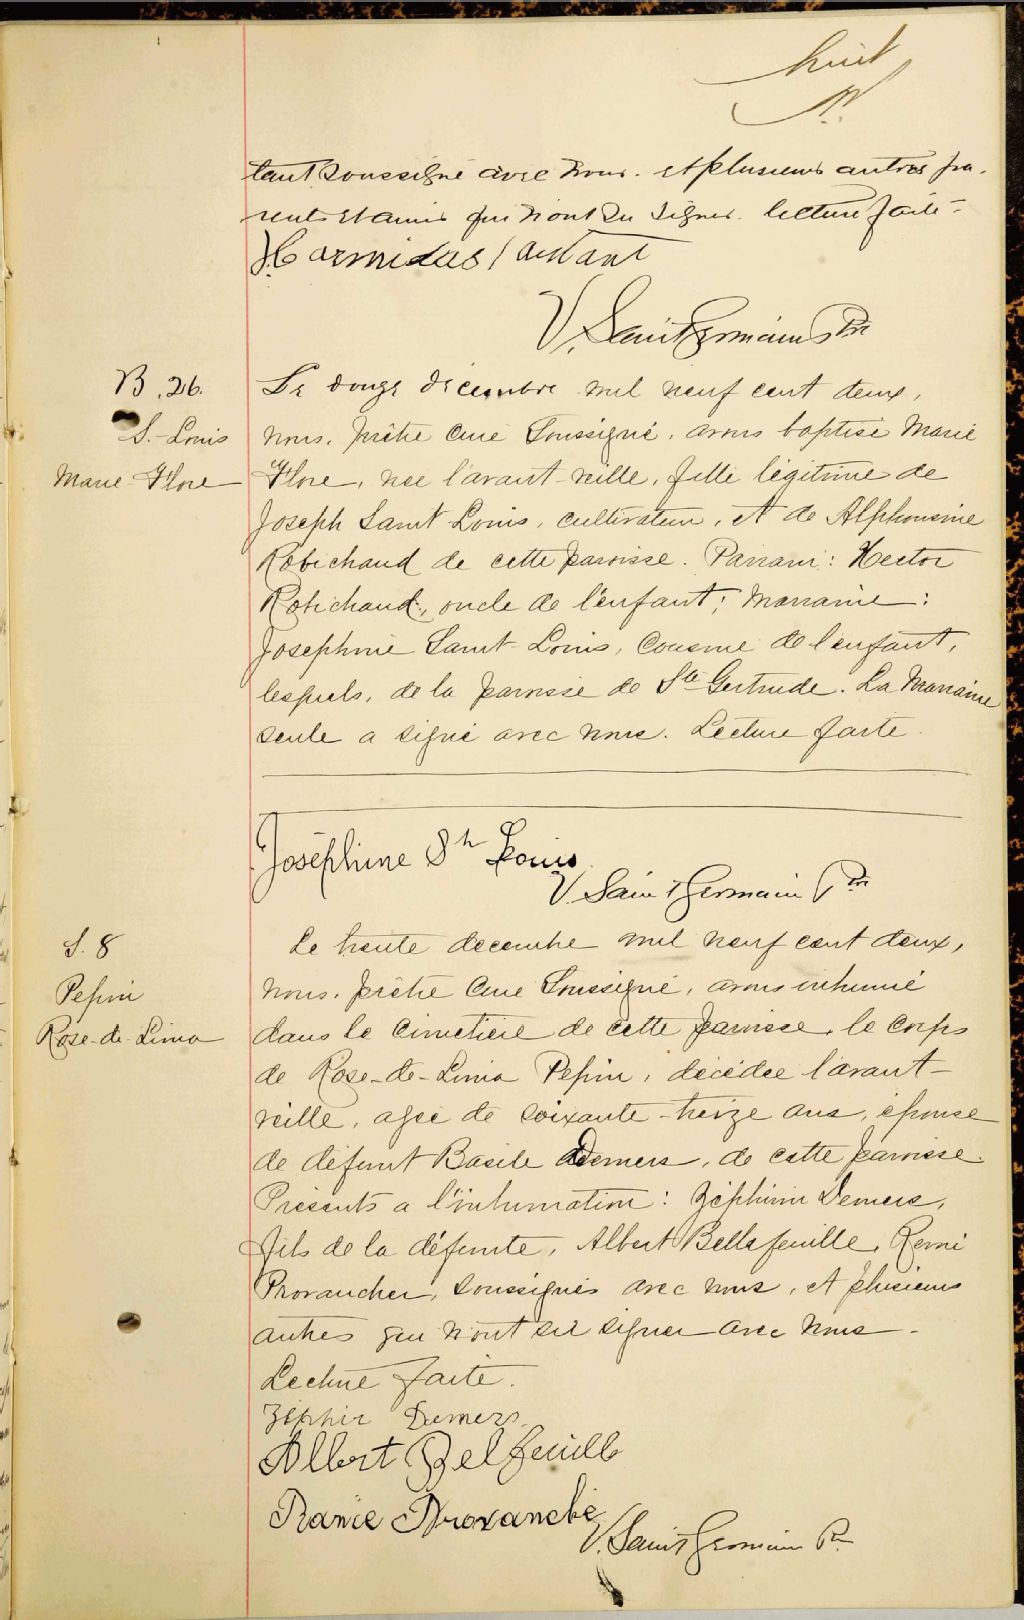 huit
tant soussigné avec nous. et plusieurs autres pa-
rents et amis qui n'ont su signer. lecture faite.
Harmidas
V. Saint Germain Ptre
B. 26.
S.-Louis
Marie Flore
Le douze décembre mil neuf cent deux,
nous, prêtre curé soussigné, avons baptisé Marie
Flore, née l'avant-veille, fille légitime de
Joseph Saint Louis, cultivateur, et de Alphonsine
Robichaud de cette paroisse. Parrain: Hector
Robichaud, oncle de l'enfant; Marraine:
Josephine Saint Louis, cousine de l'enfant,
lesquels, de la paroisse de Ste Gertrude. La Marraine
seule a signé avec nous. Lecture faite.
Joséphine St Louis
V. Saint Germain Ptre
S. 8
Pepin
Rose-de-Lima
Le trente decembre mil neuf cent deux,
nous, prêtre curé soussigné, avons inhumé
dans le cimetière de cette paroisse, le corps
de Rose-de-Lima Pepin, décédée l'avant-
veille, agée de soixante-treize ans, épouse
de défunt Basile Demers, de cette paroisse.
Présents a l'inhumation: Zéphirin Demers,
fils de la défunte, Albert Bellefeuille, Remi
Provancher, soussignés avec nous, et plusieurs
autres qui n'ont su signer avec nous.
Lecture faite.
Zéphir Demers
Albert Belfeuille
Ramie Provanche
V. Saint Germain Ptre